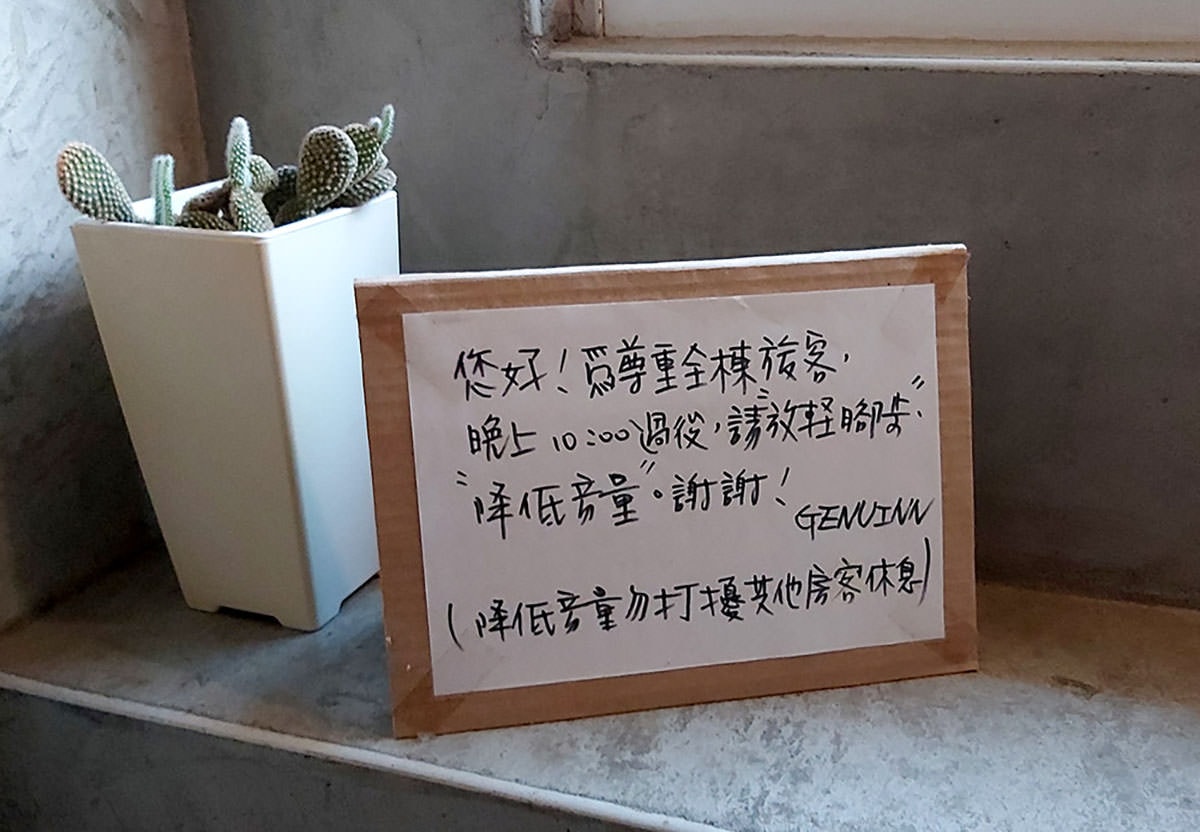 您好！為尊重全棟旅客，
晚上10:00過後，請"放軽腳步"、
"降低音量"。謝謝！
GENUINN
（降低音量勿打擾其他房客休息）